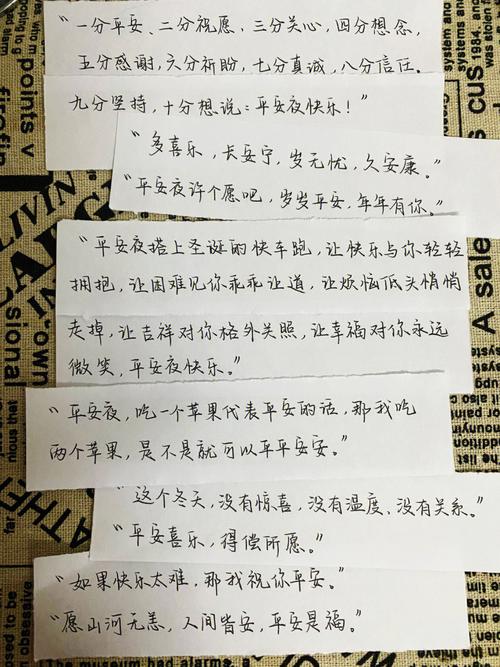 "一分平安、二分祝愿,三分关心,四分想念,
五分感谢,六分祈盼,七分真诚,八分信任.
九分坚持,十分想说:平安夜快乐!"
"多喜乐,长安宁,岁无忧,久安康。"
"平安夜许个愿吧,岁岁平安,年年有你。"
"平安夜搭上圣诞的快车跑,让快乐与你轻轻
拥抱,让困难见你乖乖让道,让烦恼低头悄悄
走掉,让吉祥对你格外关照,让幸福对你永远
微笑,平安夜快乐。"
"平安夜,吃一个苹果代表平安的话,那我吃
两个苹果,是不是就可以平平安安。"
"这个冬天,没有惊喜,没有温度、没有关系。"
"平安喜乐,得偿所愿。"
"如果快乐太难,那我祝你平安。"
"愿山河无恙,人间皆安,平安是福。"